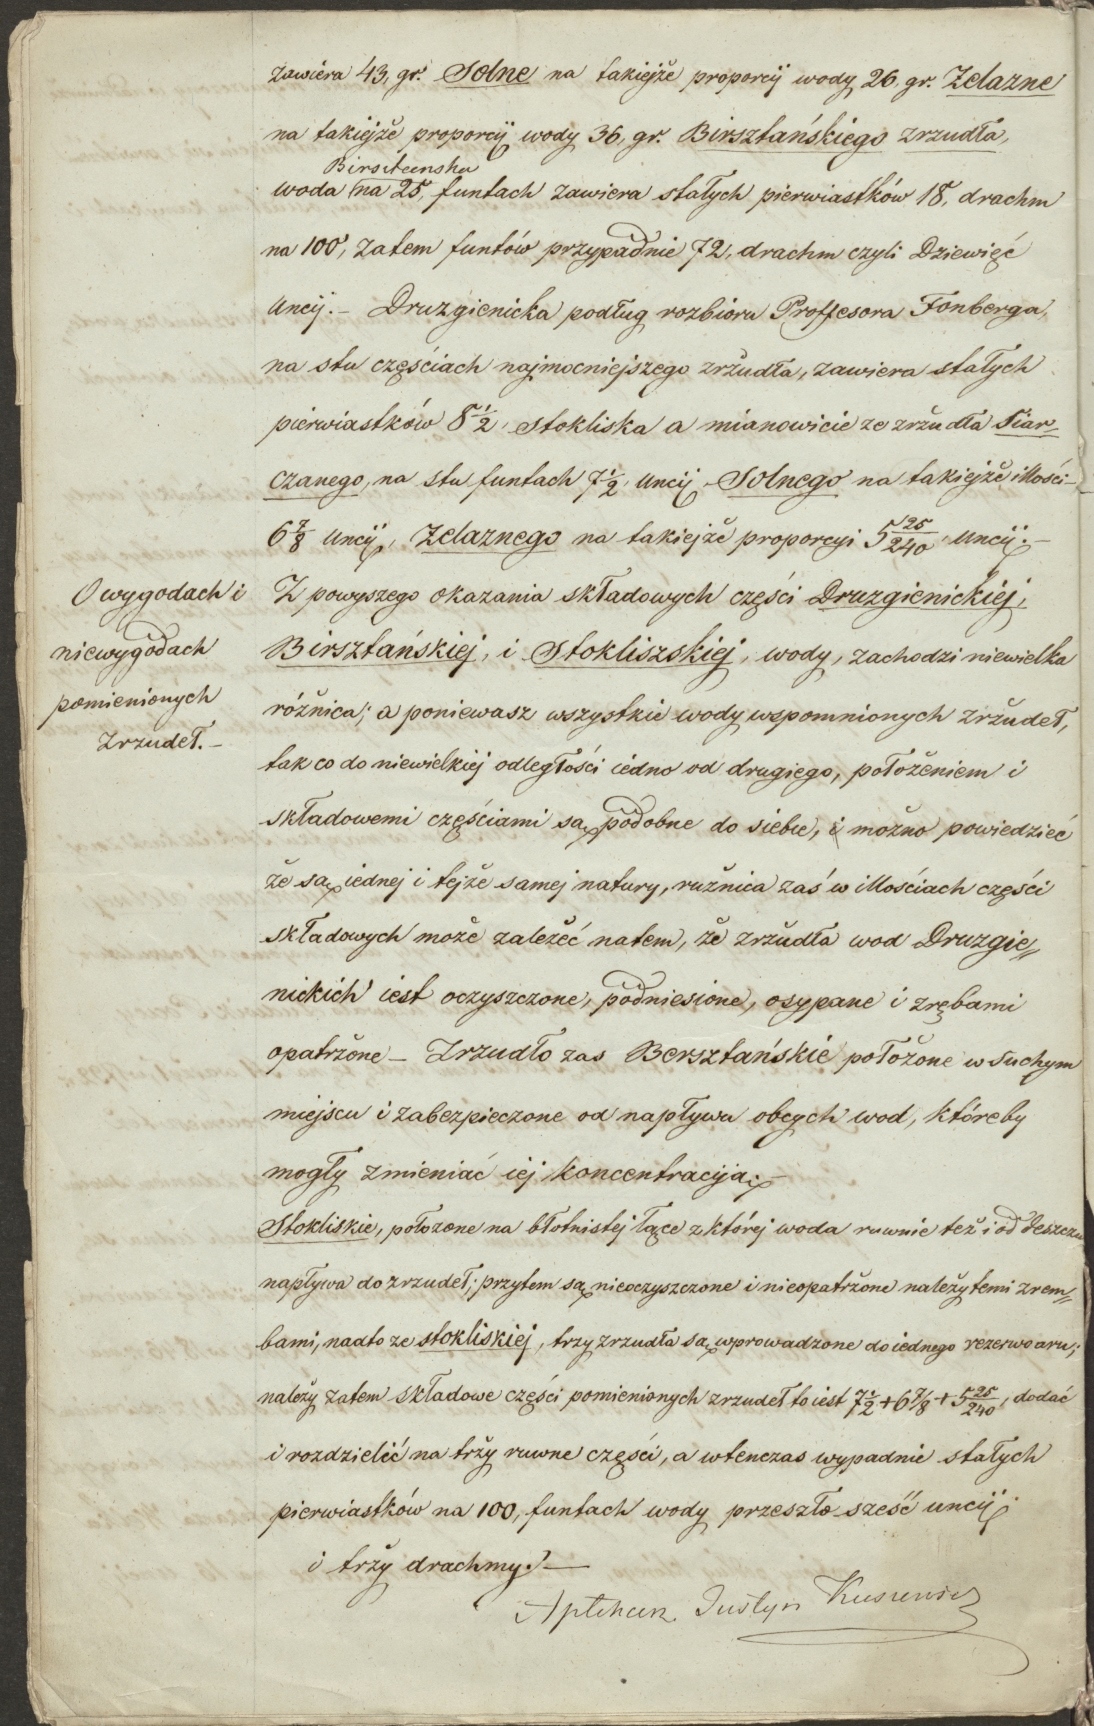 zawiéra 43, gr. Solne na takiejże proporcij wody 26, gr. Żelazne
na takiejże proporcij wody 36, gr. Birsztańskiego zrzudła,
Birsztanska
woda na 25, funtach zawiera stałych pierwiastków 18, drachm
na 100, zatem funtów przypadnie 72, drachm czyli Dziewięć
Uncij. – Druzgienicka podług rozbioru Proffesora Fonberga,
na stu częściach najmocniejszego zrżudła, zawiera stałych
pierwiastków 8 1/2, Stokliska a mianowicie ze zrżudła Siar-
czanego, na stu funtach 7 1/2, Uncij Solnego na takiejże illości
6 7/8 Uncij, Żelaznego na takiejże proporcyi 5 25/240, Uncij. –
O wygodach i
niewygodach
pomienionych
zrzudeł. –
Z powyszego okazania składowych części Druzgienickiej,
Birsztańskiej, i Stokliszskiej, wody, zachodzi niewielka
różnica; a poniewasz wszystkie wody wspomnionych zrżudeł,
tak co do niewielkiej odległości iedno od drugiego, położeniem i
składowemi częściami są podobne do siebie, i możno powiedzieć
że są iednej i tejże samej natury, rużnica zaś w illościach części
składowych może zależéć natem, że zrżudła wod Druzgie„
nickich iest oczyszczone, podniesione, osypane i zrębami
opatrżone – Zrzudło zas Bersztańskie położone w suchym
miejscu i zabezpieczone od napływu obcych wod, któreby
mogły zmieniać iej koncentracyją. –
Stokliskie, położone na błotnistej łące z której woda ruwnie też i od deszczu
napływa do zrzudeł; przytem są nieoczyszczone i nieopatrżone należytemi zrem„
bami, nadto ze stokliskiej, trzy zrzudła są wprowadzone do iednego rezerwoaru;
należy zatem składowe części pomienionych zrzudeł to iest 7 1/2 + 6 7/8 + 5 25/240, dodać
i rozdzielić na trży ruwne części, a wtenczas wypadnie stałych
pierwiastków na 100, funtach wody przeszło sześć uncij
i trży drachmy. –
Aptekarz Justyn